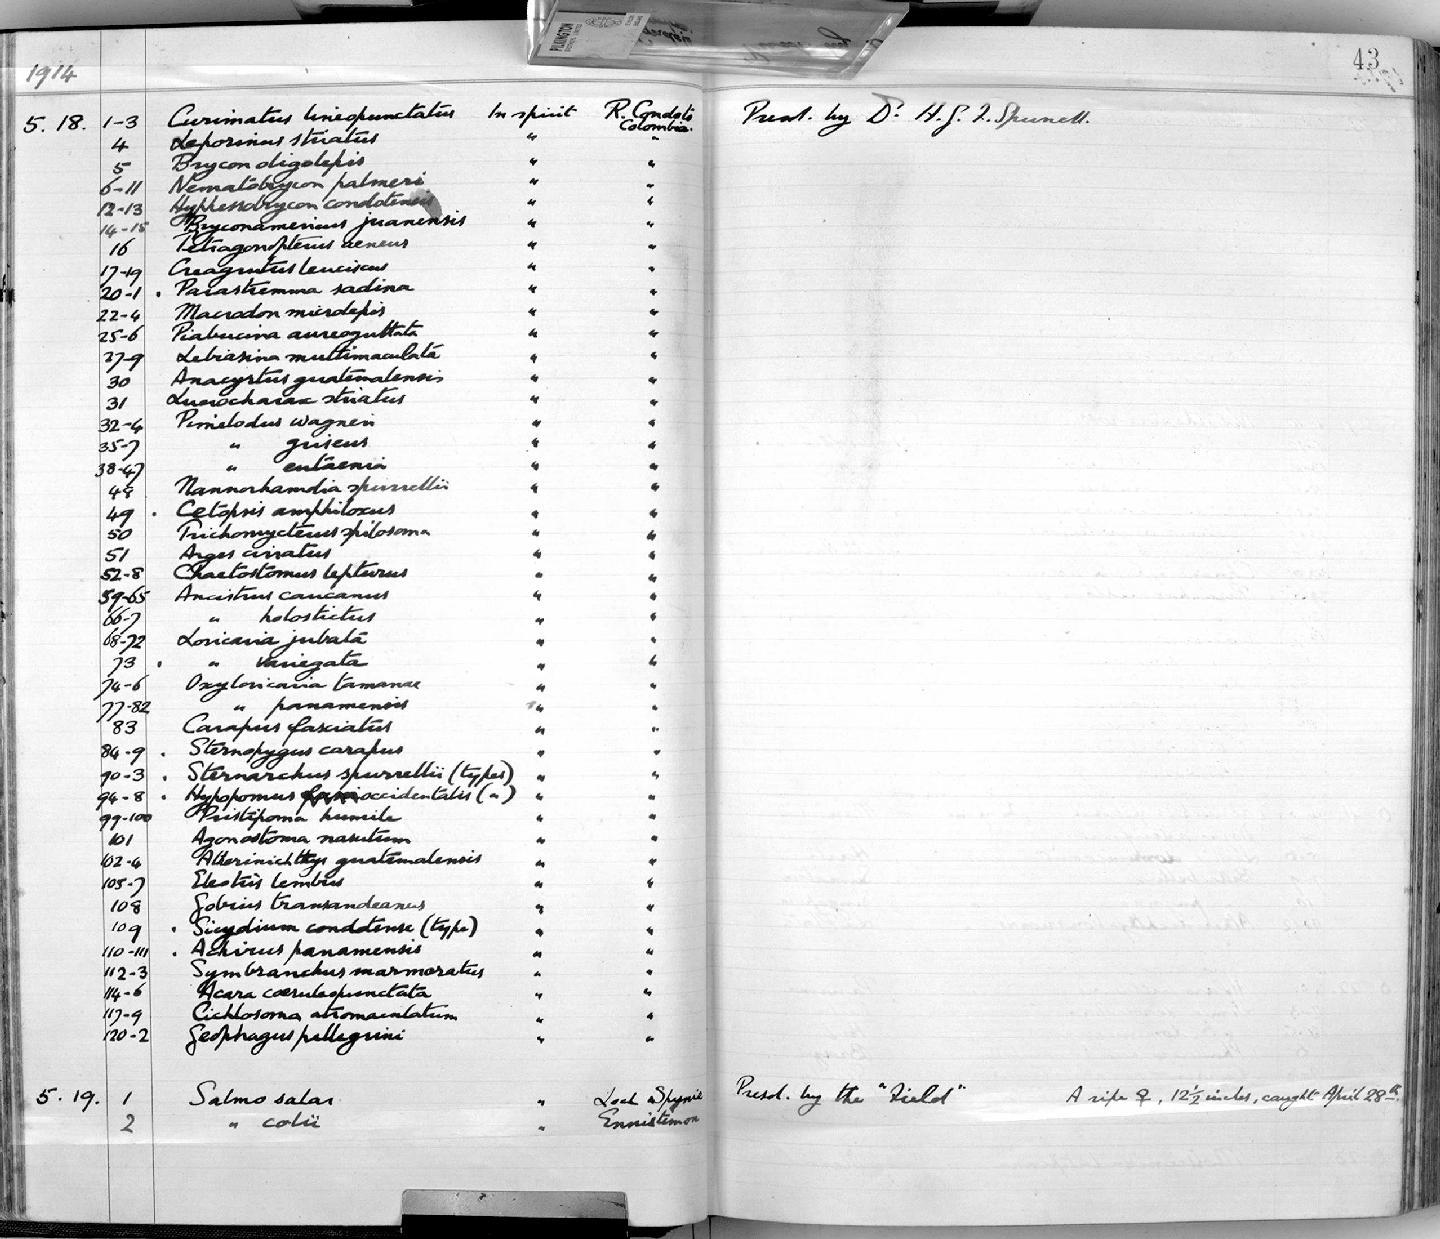 PILKINGTON
1914
43
5. 18. 1-3 Curimatus lineopunctatus In spirit R. Condoto Colombia. Presd. by Dr. H.G.F. Spurrell.
4 Leporinus striatus " "
5 Brycon oligolepis " "
6-11 Nematobrycon palmeri " "
12-13 Hyphessobrycon condotensis " "
14-15 Bryconamericus juanensis " "
16 Tetragonopterus aeneus " "
17-19 Creagrutus leuciscus " "
20-1 . Parastremma sadina " "
22-4 Macrodon microlepis " "
25-6 Piabucina aureoguttata " "
27-9 Lebiasina multimaculata " "
30 Anacyrtus guatemalensis " "
31 Luciocharax striatus " "
32-4 Pimelodus wagneri " "
35-7 " griseus " "
38-47 " eutaenia " "
48 Nannorhamdia spurrellii " "
49 . Cetopsis amphiloxus " "
50 Trichomycterus spilosoma " "
51 Arges cirratus " "
52-8 Chaetostomus lepturus " "
59-65 Ancistrus caucanus " "
66-7 " holostictus " "
68-72 Loricaria jubata " "
73 . " variegata " "
74-6 Oxyloricaria tamanae " "
77-82 " panamensis " "
83 Carapus fasciatus " "
84-9 . Sternopygus carapus " "
90-3 . Sternarchus spurrellii (types) " "
94-8 . Hypopomus occidentalis (") " "
99-100 Pristipoma humile " "
101 Agonostoma nasutum " "
102-4 Atherinichthys guatemalensis " "
105-7 Eleotris lembus " "
108 Gobius transandeanus " "
109 . Sicydium condotense (type) " "
110-111 . Achirus panamensis " "
112-3 Symbranchus marmoratus " "
114-6 Acara coeruleopunctata " "
117-9 Cichlosoma atromaculatum " "
120-2 Geophagus pellegrini " "
5. 19. 1 Salmo salar " Loch Spynie Presd. by the "Field" A ripe ♀, 12½ inches, caught April 28th.
2 " colii " Ennistemon